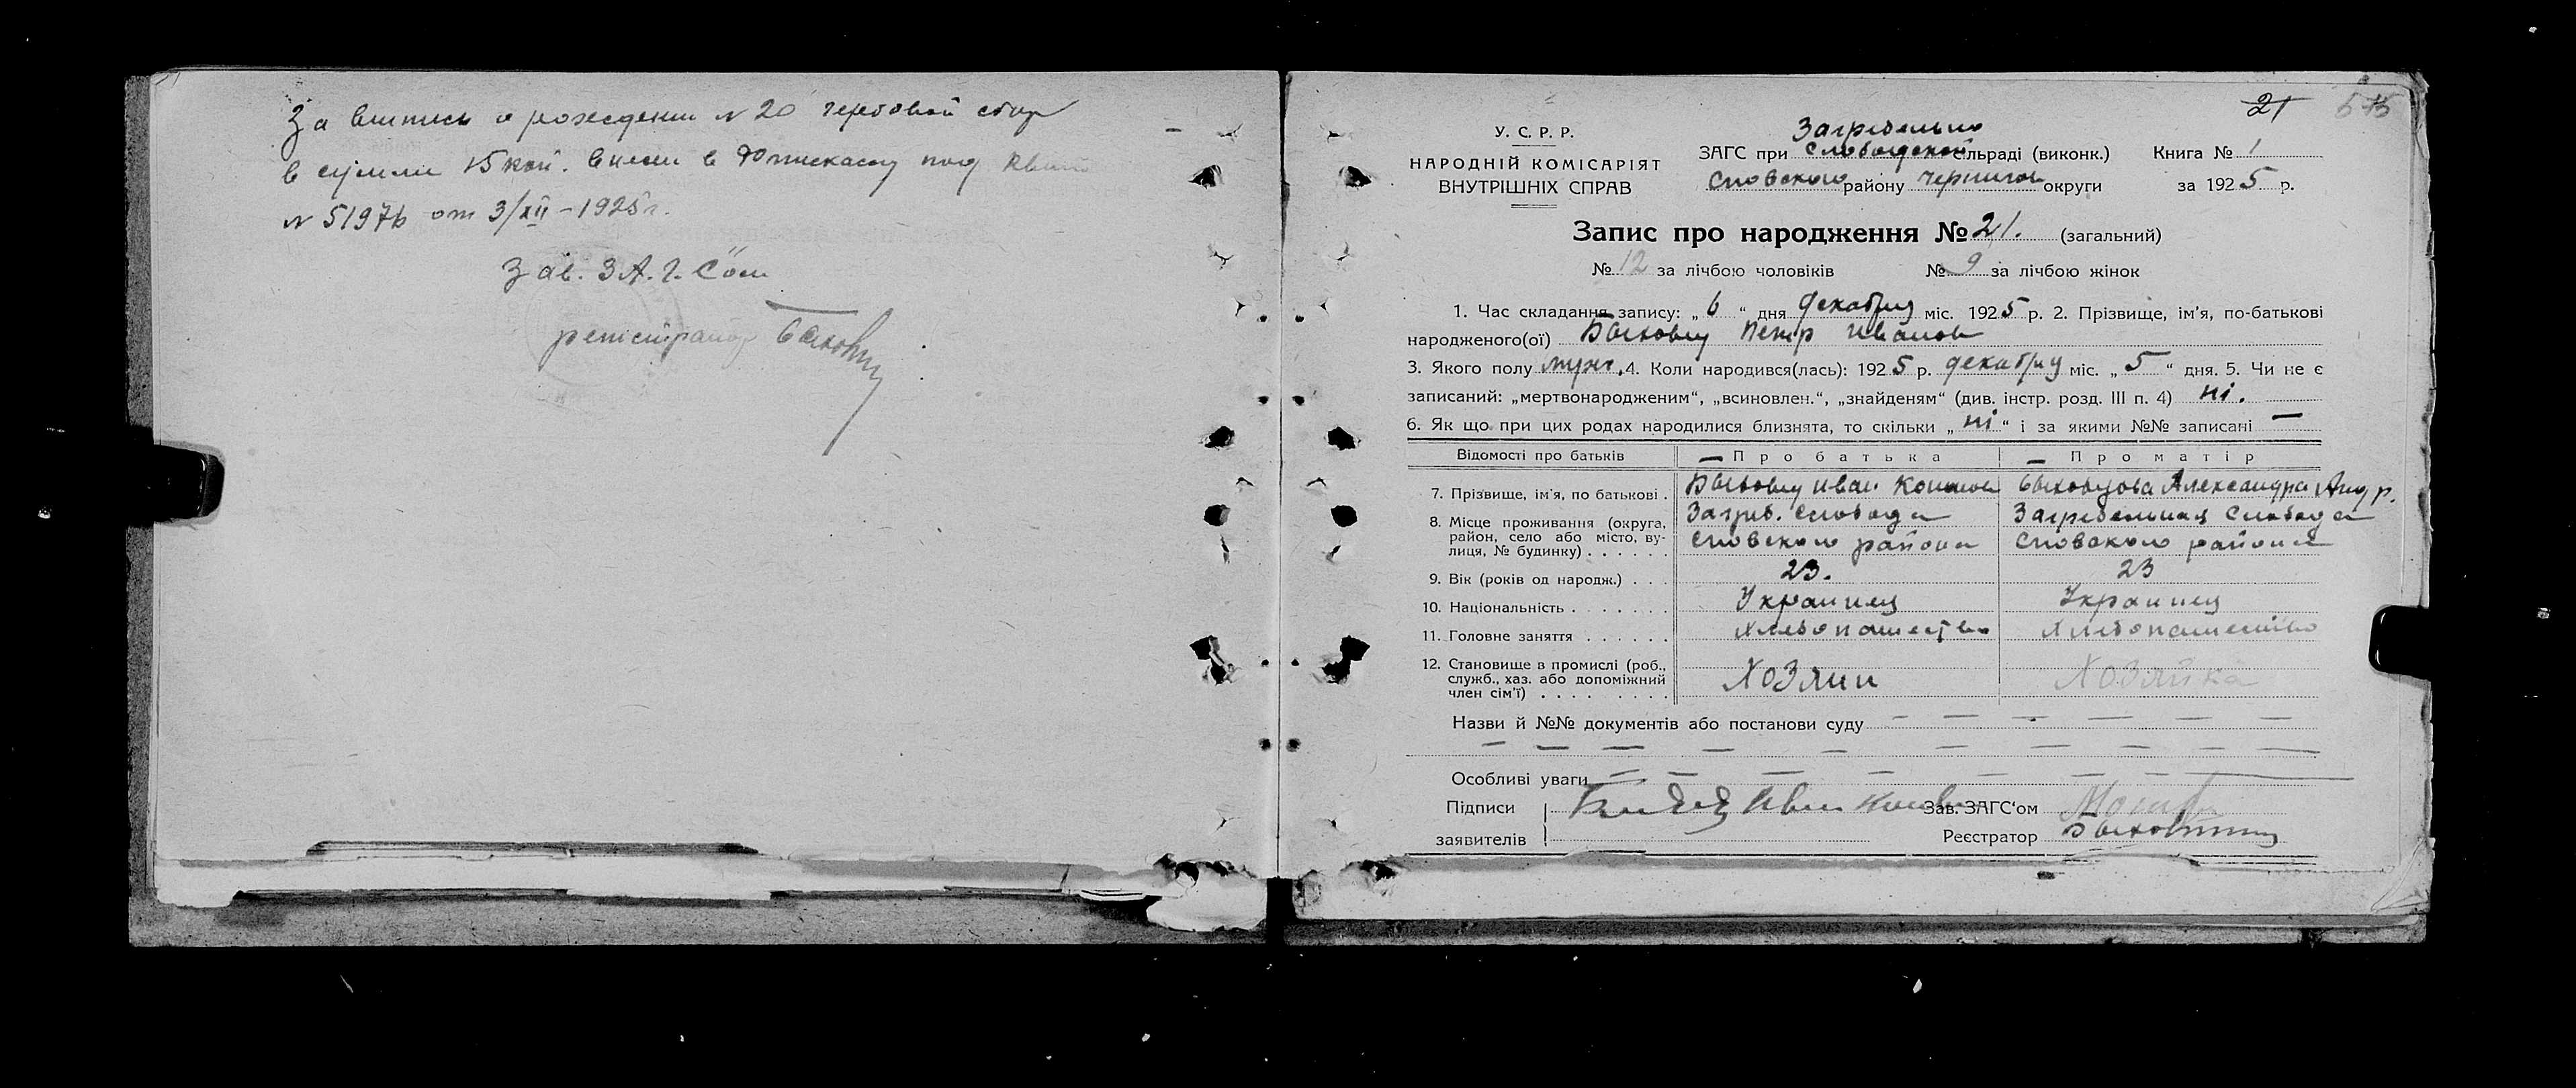 За выпись о рождении N 20 гербовой сбор
в сумме 15 коп. внесен в под
N 51976 от 3/XII-1925 г.
Зав. З.А.Г.С'ом
регистратор
21
У. С. Р. Р.
НАРОДНІЙ КОМІСАРІЯТ
ВНУТРІШНІХ СПРАВ
Загребельно
ЗАГС при Слободской сільраді (виконк.) Книга № 1
Сновского району Чернигов округи за 1925 р.
Запис про народження № 21. (загальний)
№ 12 за лічбою чоловіків № 9 за лічбою жінок
1. Час складання запису: „ 6 “ дня декабря міс. 1925 р. 2. Прізвище, ім'я, по-батькові
народженого(ої) Быховец Петр Иванов
3. Якого полу муж. 4. Коли народився(лась): 1925 р. декабря міс. „ 5 “ дня. 5. Чи не є
записаний: „мертвонародженим“, „всиновлен.“, „знайденям“ (див. інстр. розд. III п. 4) ні.
6. Як що при цих родах народилися близнята, то скільки „ ні “ і за якими №№ записані —
Відомості про батьків Про батька Про матір
7. Прізвище, ім'я, по батькові . Быховец Иван Конон Быховцова Александра Андр.
8. Місце проживання (округа, район, село або місто, вулиця, № будинку) . . . . . . Загреб. Слобода Сновского района Загребельная Слобода Сновского района
9. Вік (років од народж.) . . . 23. 23
10. Національність . . . . . . . Украинец Украинец
11. Головне заняття . . . . . . Хлебопашество Хлебопашество
12. Становище в промислі (роб., служб., хаз. або допоміжний член сім'ї) . . . . . . . . Хозяин Хозяйка
Назви й №№ документів або постанови суду — — — — — —
— — — — — — — — — —
Особливі уваги — — — — — — — —
Підписи Иван Зав. ЗАГС'ом
заявителів Реєстратор